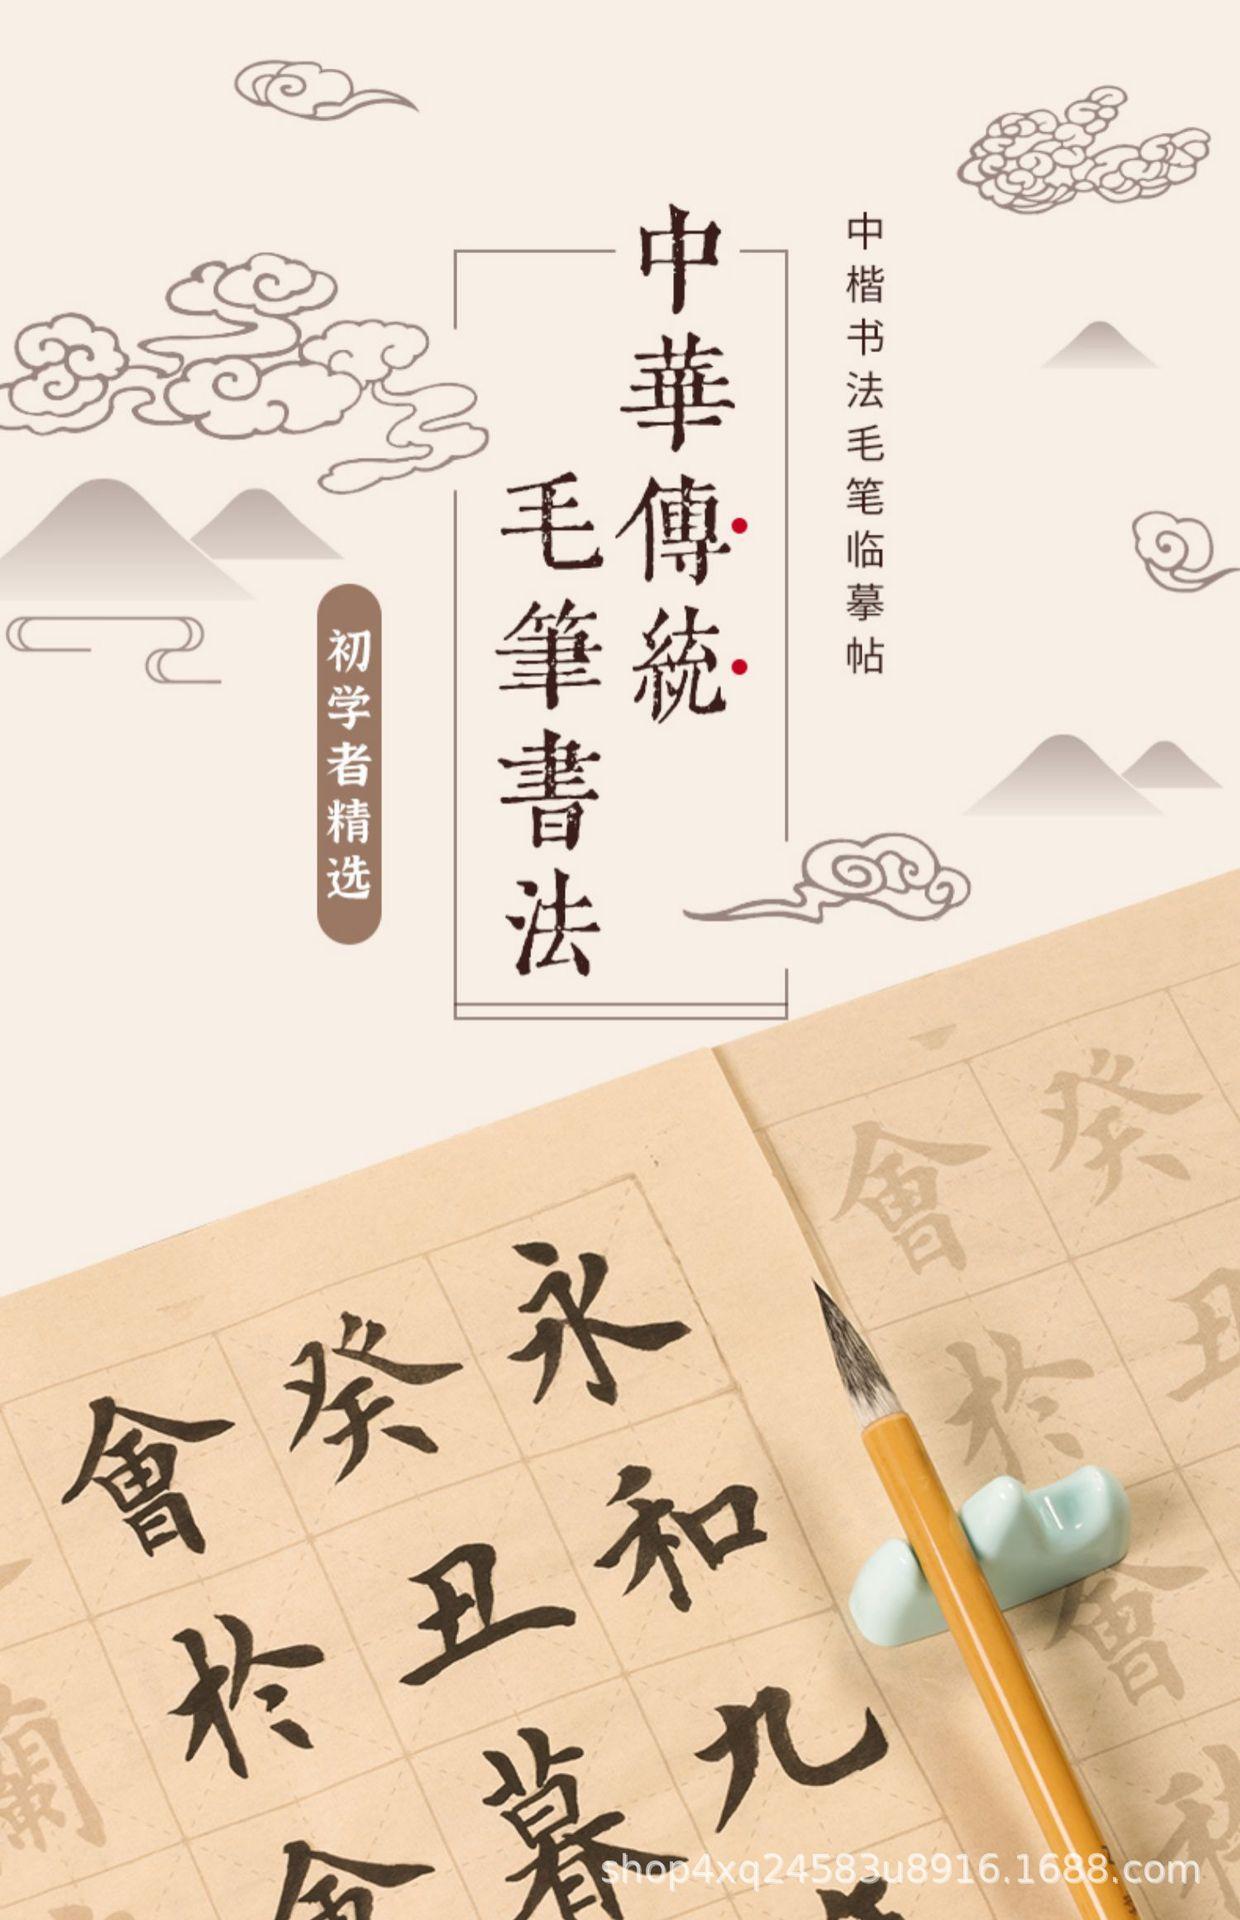 中楷书法毛笔临摹帖
中華傳統
毛筆書法
初学者精选
癸
會
丑
於
會
永
和
九
癸
丑
暮
會
於
會
蘭
shop4xq24583u8916.1688.com